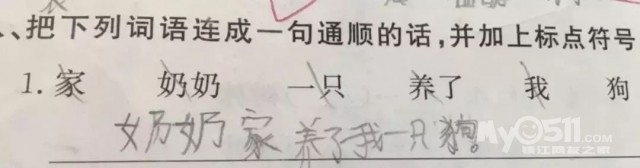 、把下列词语连成一句通顺的话,并加上标点符号
1. 家 奶奶 一只 养了 我 狗
奶奶家养了我一只狗。
My0511.com